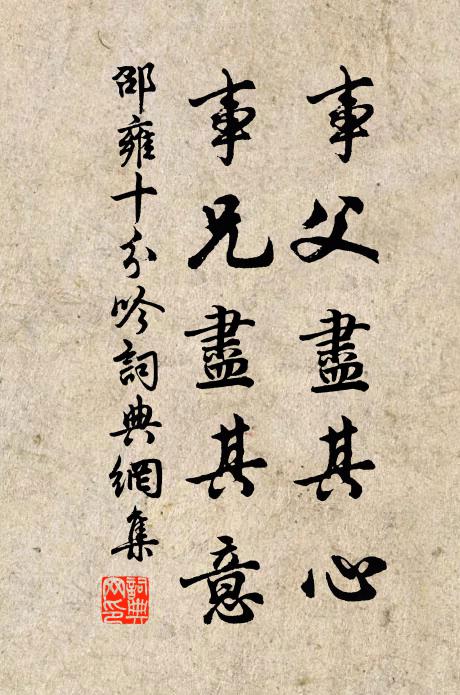 事父盡其心
事兄盡其意
邵雍十分吟詞典網集
詞典網印